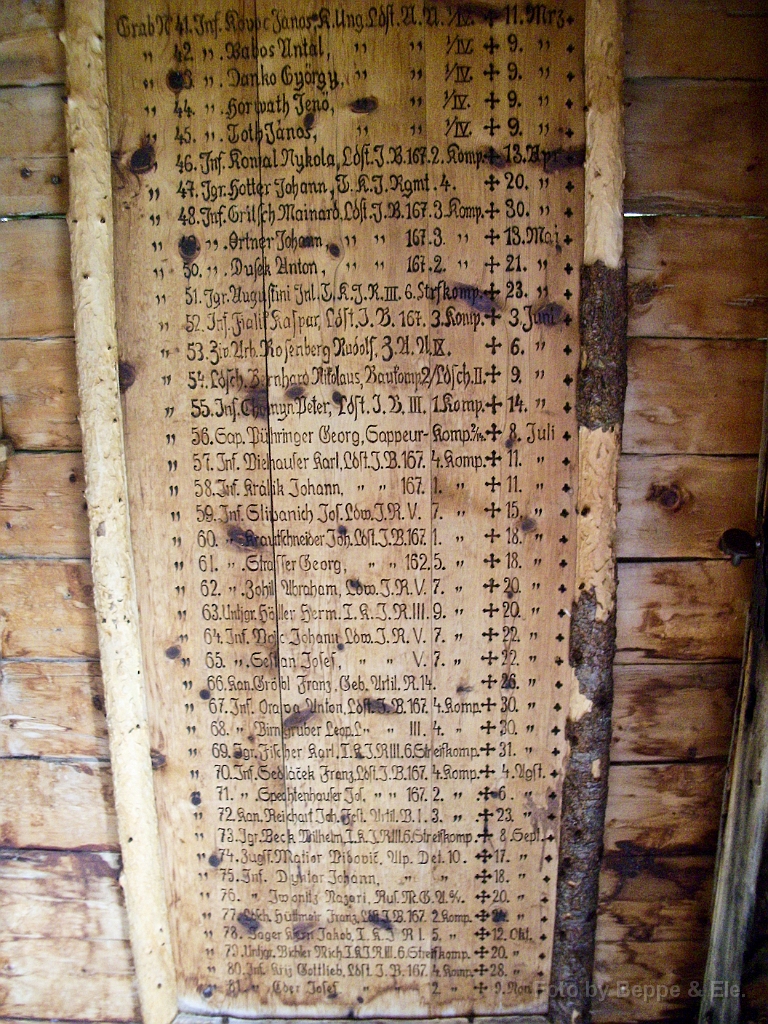 Grab Nº 41. Inf. Koppe Janos, K. Ung. Ldst. A. A. 1/IV. ✝ 11. Mrz.
„ 42. „. Babos Antal, „ „ 1/IV. ✝ 9. „
„ 43. „. Danko György, „ „ 1/IV. ✝ 9. „
„ 44. „. Horwath Jenö, „ „ 1/IV. ✝ 9. „
„ 45. „. Toth János, „ „ 1/IV. ✝ 9. „
„ 46. Inf. Nykola, Ldst. J. B. 167. 2. Komp. ✝ 13. Apr.
„ 47. Jgr. Hotter Johann, T. K. J. Rgmt. 4. ✝ 20. „
„ 48. Inf. Gritsch Mainard, Ldst. J. B. 167. 3. Komp. ✝ 30. „
„ 49. „. Ortner Johann, „ „ 167. 3. „ ✝ 13. Mai
„ 50. „. Dusek Anton, „ „ 167. 2. „ ✝ 21. „
„ 51. Jgr. Augustini Inl. T. K. J. R. III. 6. Strfkomp. ✝ 23. „
„ 52. Inf. Fialik Kaspar, Ldst. J. B. 167. 3. Komp. ✝ 3. Juni
„ 53. Ziv. Arb. Rosenberg Rudolf, Z. A. A. IX. ✝ 6. „
„ 54. Ldsch. Bernhard Nikolaus, Baukomp. 2/Ldsch. II. ✝ 9. „
„ 55. Inf. Chomyn Peter, Ldst. J. B. III. 1. Komp. ✝ 14. „
„ 56. Sap. Pühringer Georg, Sappeur-Komp. 2/14. ✝ 8. Juli
„ 57. Inf. Viehauser Karl, Ldst. J. B. 167. 4. Komp. ✝ 11. „
„ 58. Inf. Králik Johann, „ „ 167. 1. „ ✝ 11. „
„ 59. Inf. Slipanich Jos. Ldw. J. R. V. 7. „ ✝ 15. „
„ 60. „. Krautschneider Joh. Ldst. J. B. 167. 1. „ ✝ 18. „
„ 61. „. Strasser Georg, „ „ 162. 5. „ ✝ 18. „
„ 62. „. Zohil Abraham, Ldw. J. R. V. 7. „ ✝ 20. „
„ 63. Untjgr. Höller Herm. T. K. J. R. III. 9. „ ✝ 20. „
„ 64. Inf. Johann Ldw. J. R. V. 7. „ ✝ 22. „
„ 65. „. Josef, „ „ V. 7. „ ✝ 22. „
„ 66. Kan. Gröbl Franz, Geb. Artil. R. 14. ✝ 26. „
„ 67. Inf. Orawa Anton, Ldst. J. B. 167. 4. Komp. ✝ 30. „
„ 68. „ Birngruber Leop. L„ „ III. 4. „ ✝ 30. „
„ 69. Jgr. Fischer Karl, T. K. J. R. III. 6. Streifkomp. ✝ 31. „
„ 70. Inf. Sedláček Franz, Ldst. J. B. 167. 4. Komp. ✝ 4. Agst.
„ 71. „. Spechtenhauser Jos. „ „ 167. 2. „ ✝ 6. „
„ 72. Kan. Reichart Joh. Fest. Artil. B. 1. 3. „ ✝ 23. „
„ 73. Jgr. Beck Wilhelm, T. K. J. R. III. 6. Streifkomp. ✝ 8. Sept.
„ 74. Zugsf. Matior Bibovič, Alp. Det. 10. ✝ 17. „
„ 75. Inf. Dyktar Johann, „ „ ✝ 18. „
„ 76. „ Iwonitz Nazari, Aus. M. G. A. ✝ 20. „
„ 77. Ldsch. Hüttmair Franz, Ldst. J. B. 167. 2. Komp. ✝ „
„ 78. Jäger Jakob, T. K. J. R. I. 5. „ ✝ 12. Okt.
„ 79. Untjgr. Bichler Mich. T. K. J. R. III. 6. Streifkomp. ✝ 20. „
„ 80. Inf. Kriz Gottlieb, Ldst. J. B. 167. 4. Komp. ✝ 28. „
„ 81. „ Eder Josef, „ „ 2. „ ✝ 9. Nov.
Foto by Beppe & Ele.